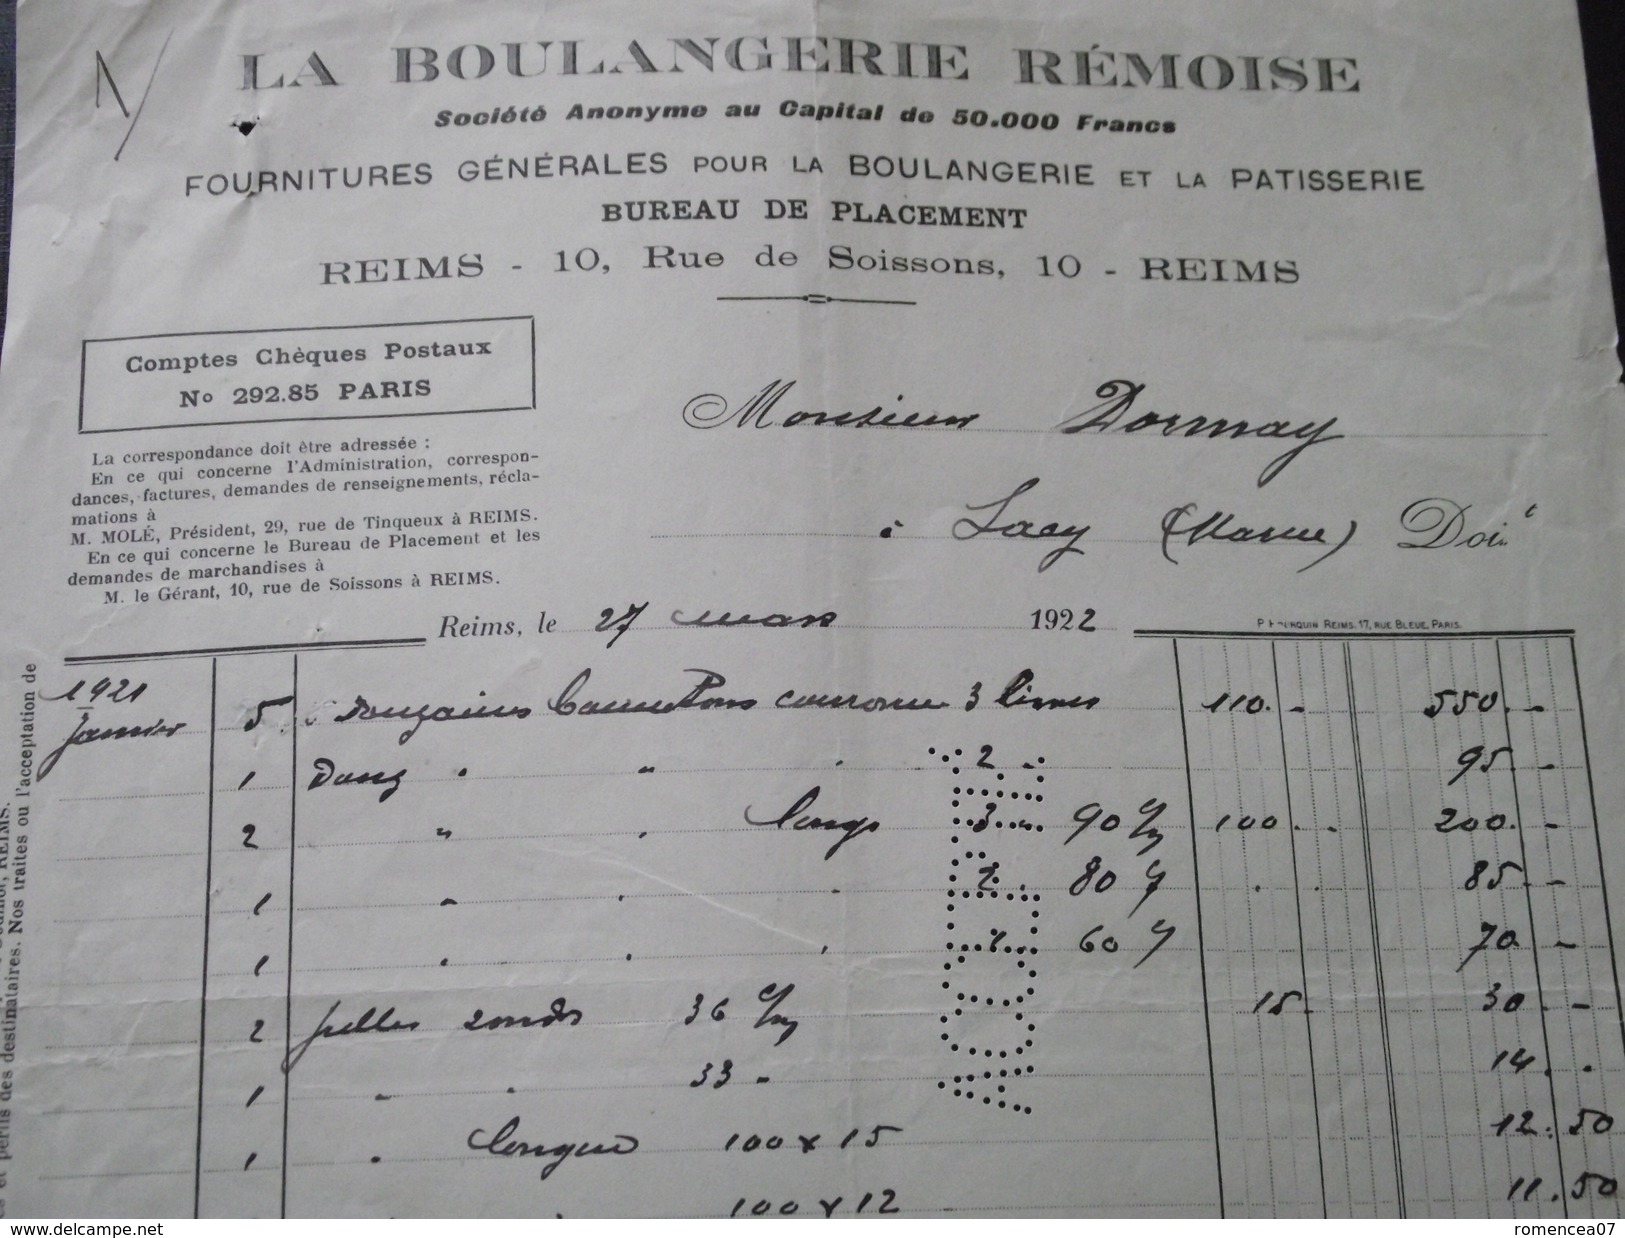 LA BOULANGERIE RÉMOISE
Société Anonyme au Capital de 50.000 Francs
FOURNITURES GÉNÉRALES POUR LA BOULANGERIE ET LA PATISSERIE
BUREAU DE PLACEMENT
REIMS - 10, Rue de Soissons, 10 - REIMS
Comptes Chèques Postaux
No 292.85 PARIS
La correspondance doit être adressée :
En ce qui concerne l'Administration, correspon-
dances, factures, demandes de renseignements, récla-
mations à
M. MOLÉ, Président, 29, rue de Tinqueux à REIMS.
En ce qui concerne le Bureau de Placement et les
demandes de marchandises à
M. le Gérant, 10, rue de Soissons à REIMS.
Monsieur Dormay
à Sacy (Marne) Doit
Reims, le 27 mars 1922
REIMS, 17, RUE BLEUE, PARIS.
1921
Janvier 5 Douzaines couronne 3 livres 110. - 550. -
1 Douz " " " 2 - 95. -
2 " " longs 3 " 90 c/m 100. - 200. -
1 " " " 2 " 80 85. -
1 " " " 60 70 -
2 pelles rondes 36 c/m 15. 30 -
1 " " 33 - 14. .
1 " longue 100 x 15 12.50
100 x 12 11.50
REIMS.
et périls des destinataires. Nos traites ou l'acceptation de
www.delcampe.net
romencea07